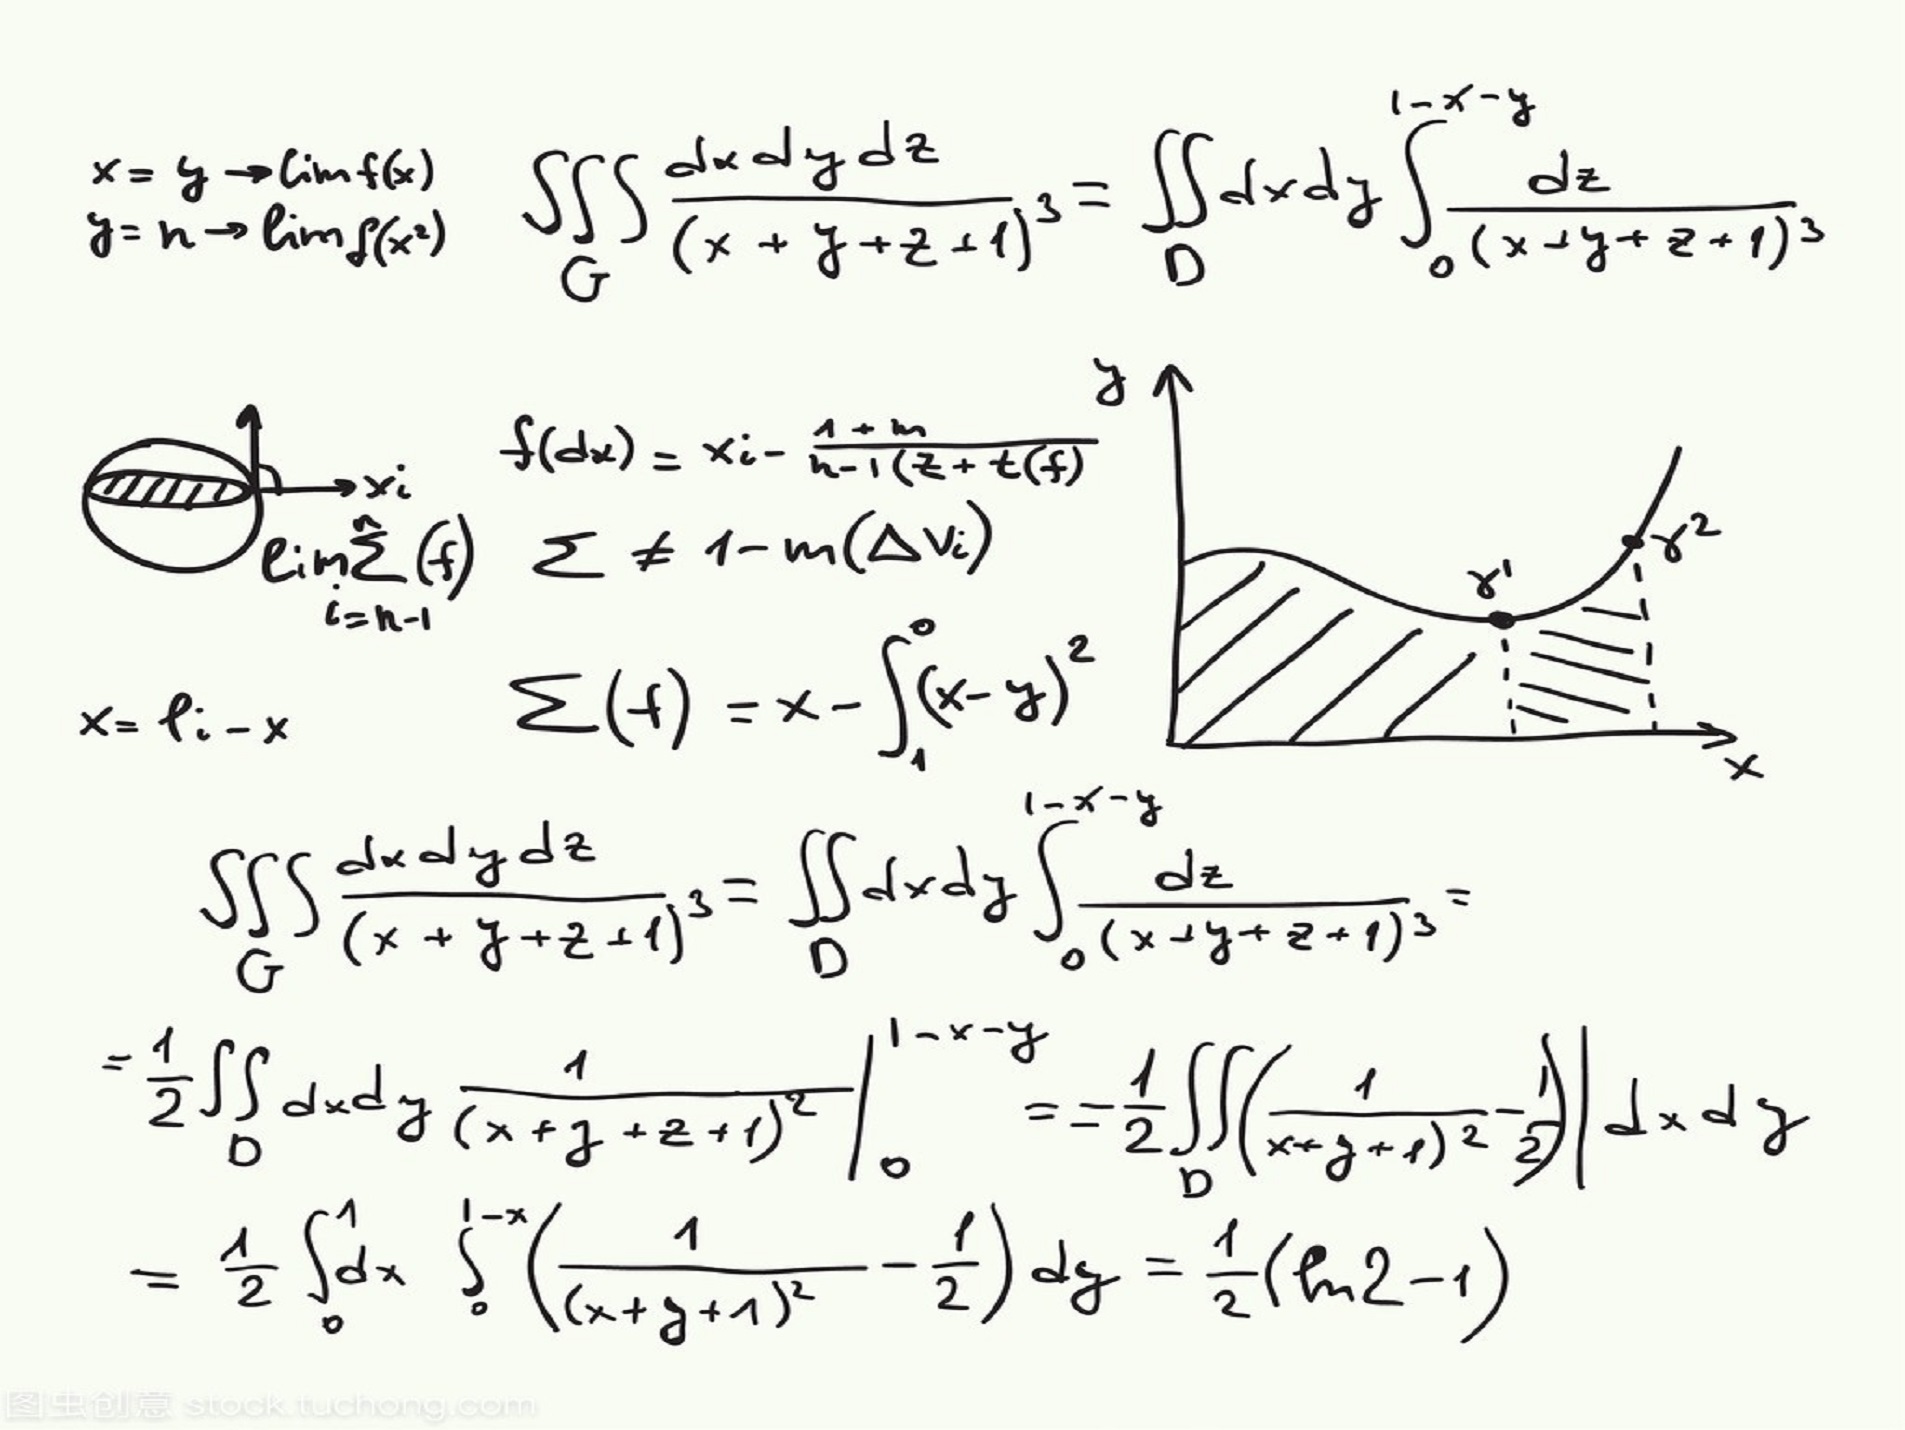 x = y → lim f(x)
y = n → lim f(x²)
∭_G dxdydz / (x + y + z + 1)³ = ∬_D dxdy ∫₀^{1-x-y} dz / (x + y + z + 1)³
xi
lim Σ^n_{i=n-1} (f)
x = li - x
f(dx) = xi - (1 + m) / (n-1(z + t(f))
Σ ≠ 1 - m(ΔVi)
Σ(f) = x - ∫₁⁰ (x - y)²
y
γ¹
γ²
x
∭_G dxdydz / (x + y + z + 1)³ = ∬_D dxdy ∫₀^{1-x-y} dz / (x + y + z + 1)³ =
= 1/2 ∬_D dxdy 1 / (x + y + z + 1)² |₀^{1-x-y} = = -1/2 ∬_D (1 / x + y + 1)² - 1/2)| dxdy
= 1/2 ∫₀¹ dx ∫₀^{1-x} (1 / (x + y + 1)² - 1/2) dy = 1/2 (ln2 - 1)
图虫创意 stock.tuchong.com